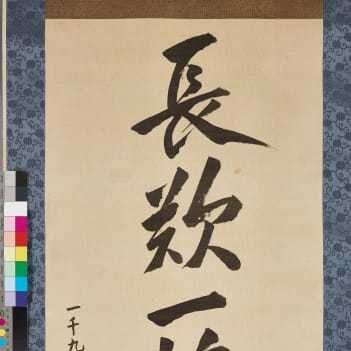 長歎一
一千九